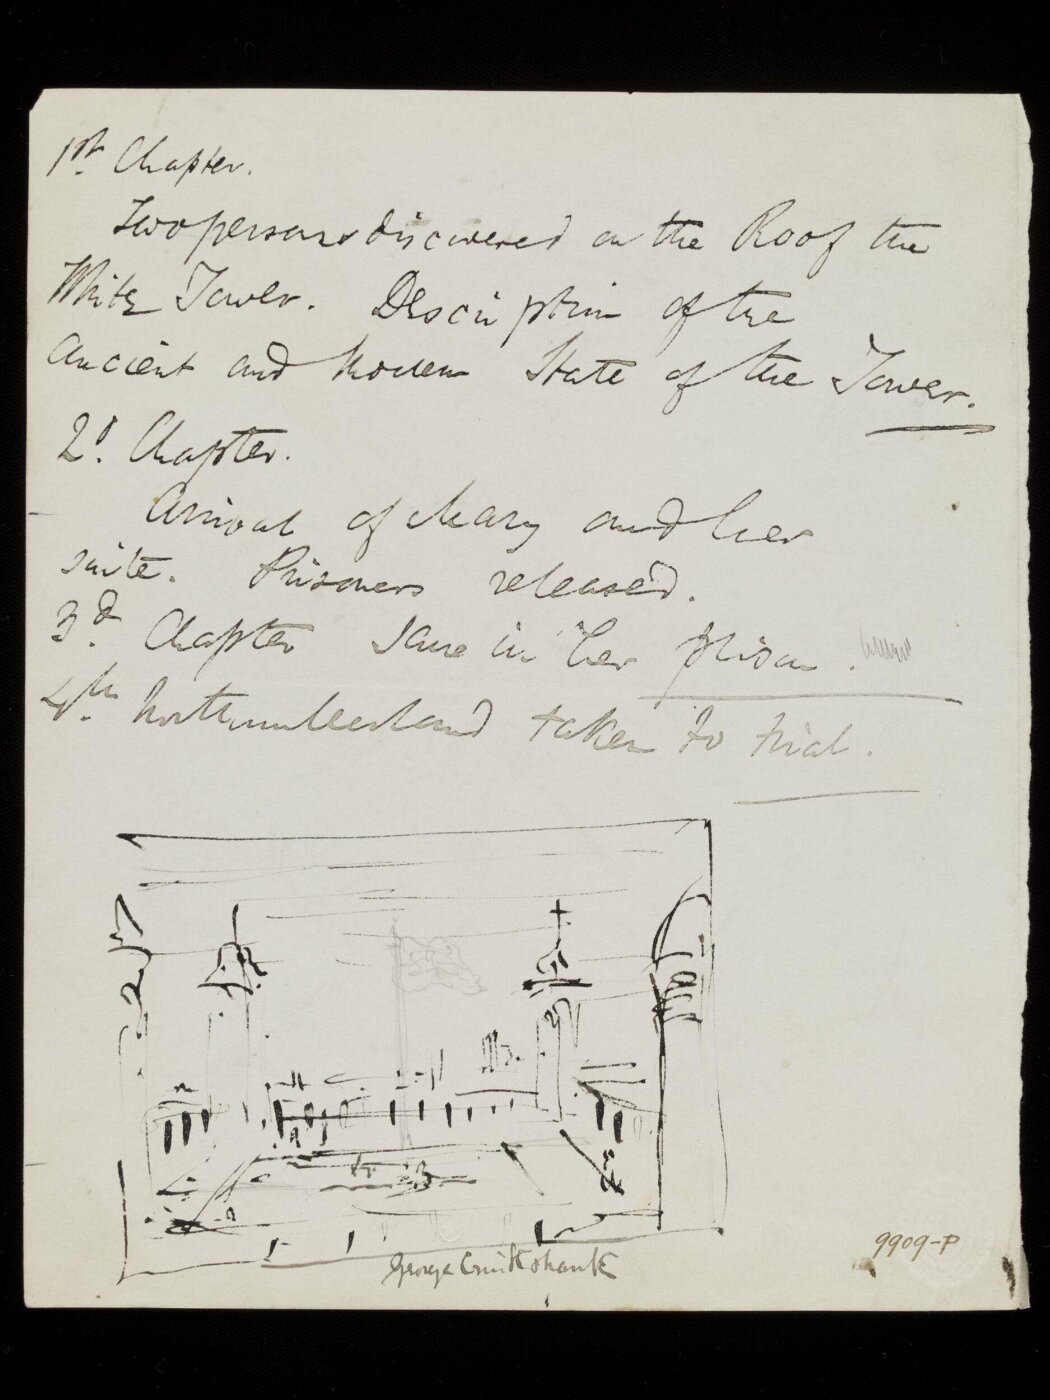 1st. Chapter.
Two persons discovered on the Roof the
White Tower. Description of the
Ancient and Modern State of the Tower.
2d. Chapter.
Arrival of Mary and her
suite. Prisoners released.
3d. Chapter Jane in her prison.
4th. Northumberland taken to trial.
George Cruikshank
9909-P